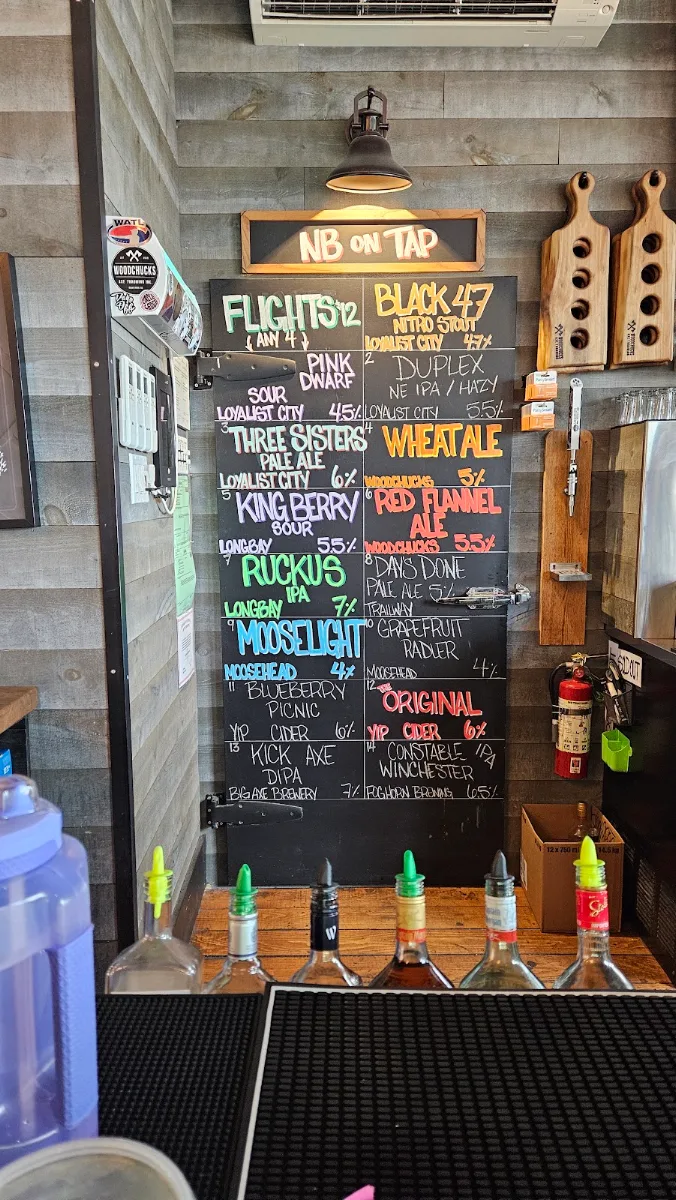 NB ON TAP
FLIGHTS $12
(ANY 4)
BLACK 47
NITRO STOUT
LOYALIST CITY 4.7%
PINK
DWARF
SOUR
LOYALIST CITY 4.5%
2
DUPLEX
NE IPA / HAZY
LOYALIST CITY 5.5%
3
THREE SISTERS
PALE ALE
LOYALIST CITY 6%
4
WHEAT ALE
WOODCHUCKS 5%
5
KING BERRY
SOUR
LONGBAY 5.5%
6
RED FLANNEL
ALE
WOODCHUCKS 5.5%
7
RUCKUS
IPA
LONGBAY 7%
8
DAYS DONE
PALE ALE 5%
TRAILWAY
9
MOOSELIGHT
MOOSEHEAD 4%
10
GRAPEFRUIT
RADLER
MOOSEHEAD 4%
11
BLUEBERRY
PICNIC
YIP CIDER 6%
12
THE
ORIGINAL
YIP CIDER 6%
13
KICK AXE
DIPA
BIG AXE BREWERY 7%
14
CONSTABLE IPA
WINCHESTER
FOGHORN BREWING 6.5%
WATL
WOODCHUCKS
SOLD OUT
12 x 750 ml
W